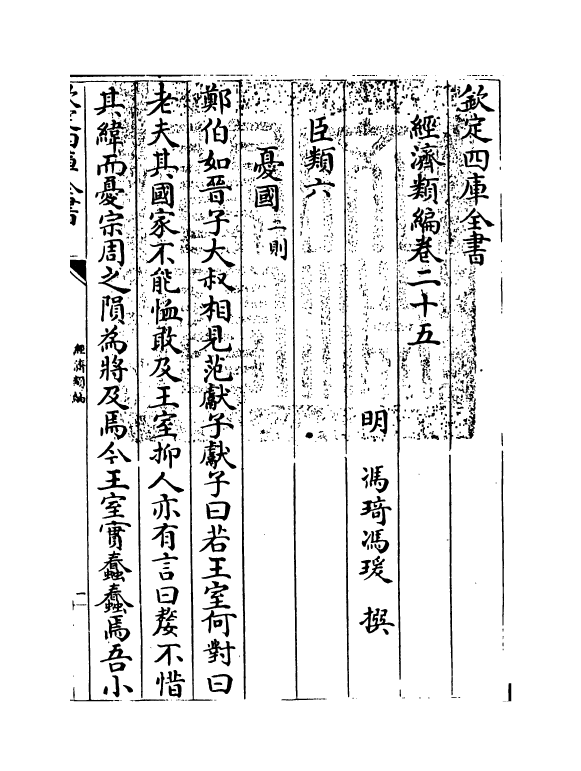 欽定四庫全書
經濟類編卷二十五
明 馮琦馮瑗 撰
臣類六
憂國二則
鄭伯如晉子大叔相見范獻子獻子曰若王室何對曰
老夫其國家不能恤敢及王室抑人亦有言曰嫠不惜
其緯而憂宗周之隕為將及焉今王室實蠢蠢焉吾小
欽定四庫全書
經濟類編